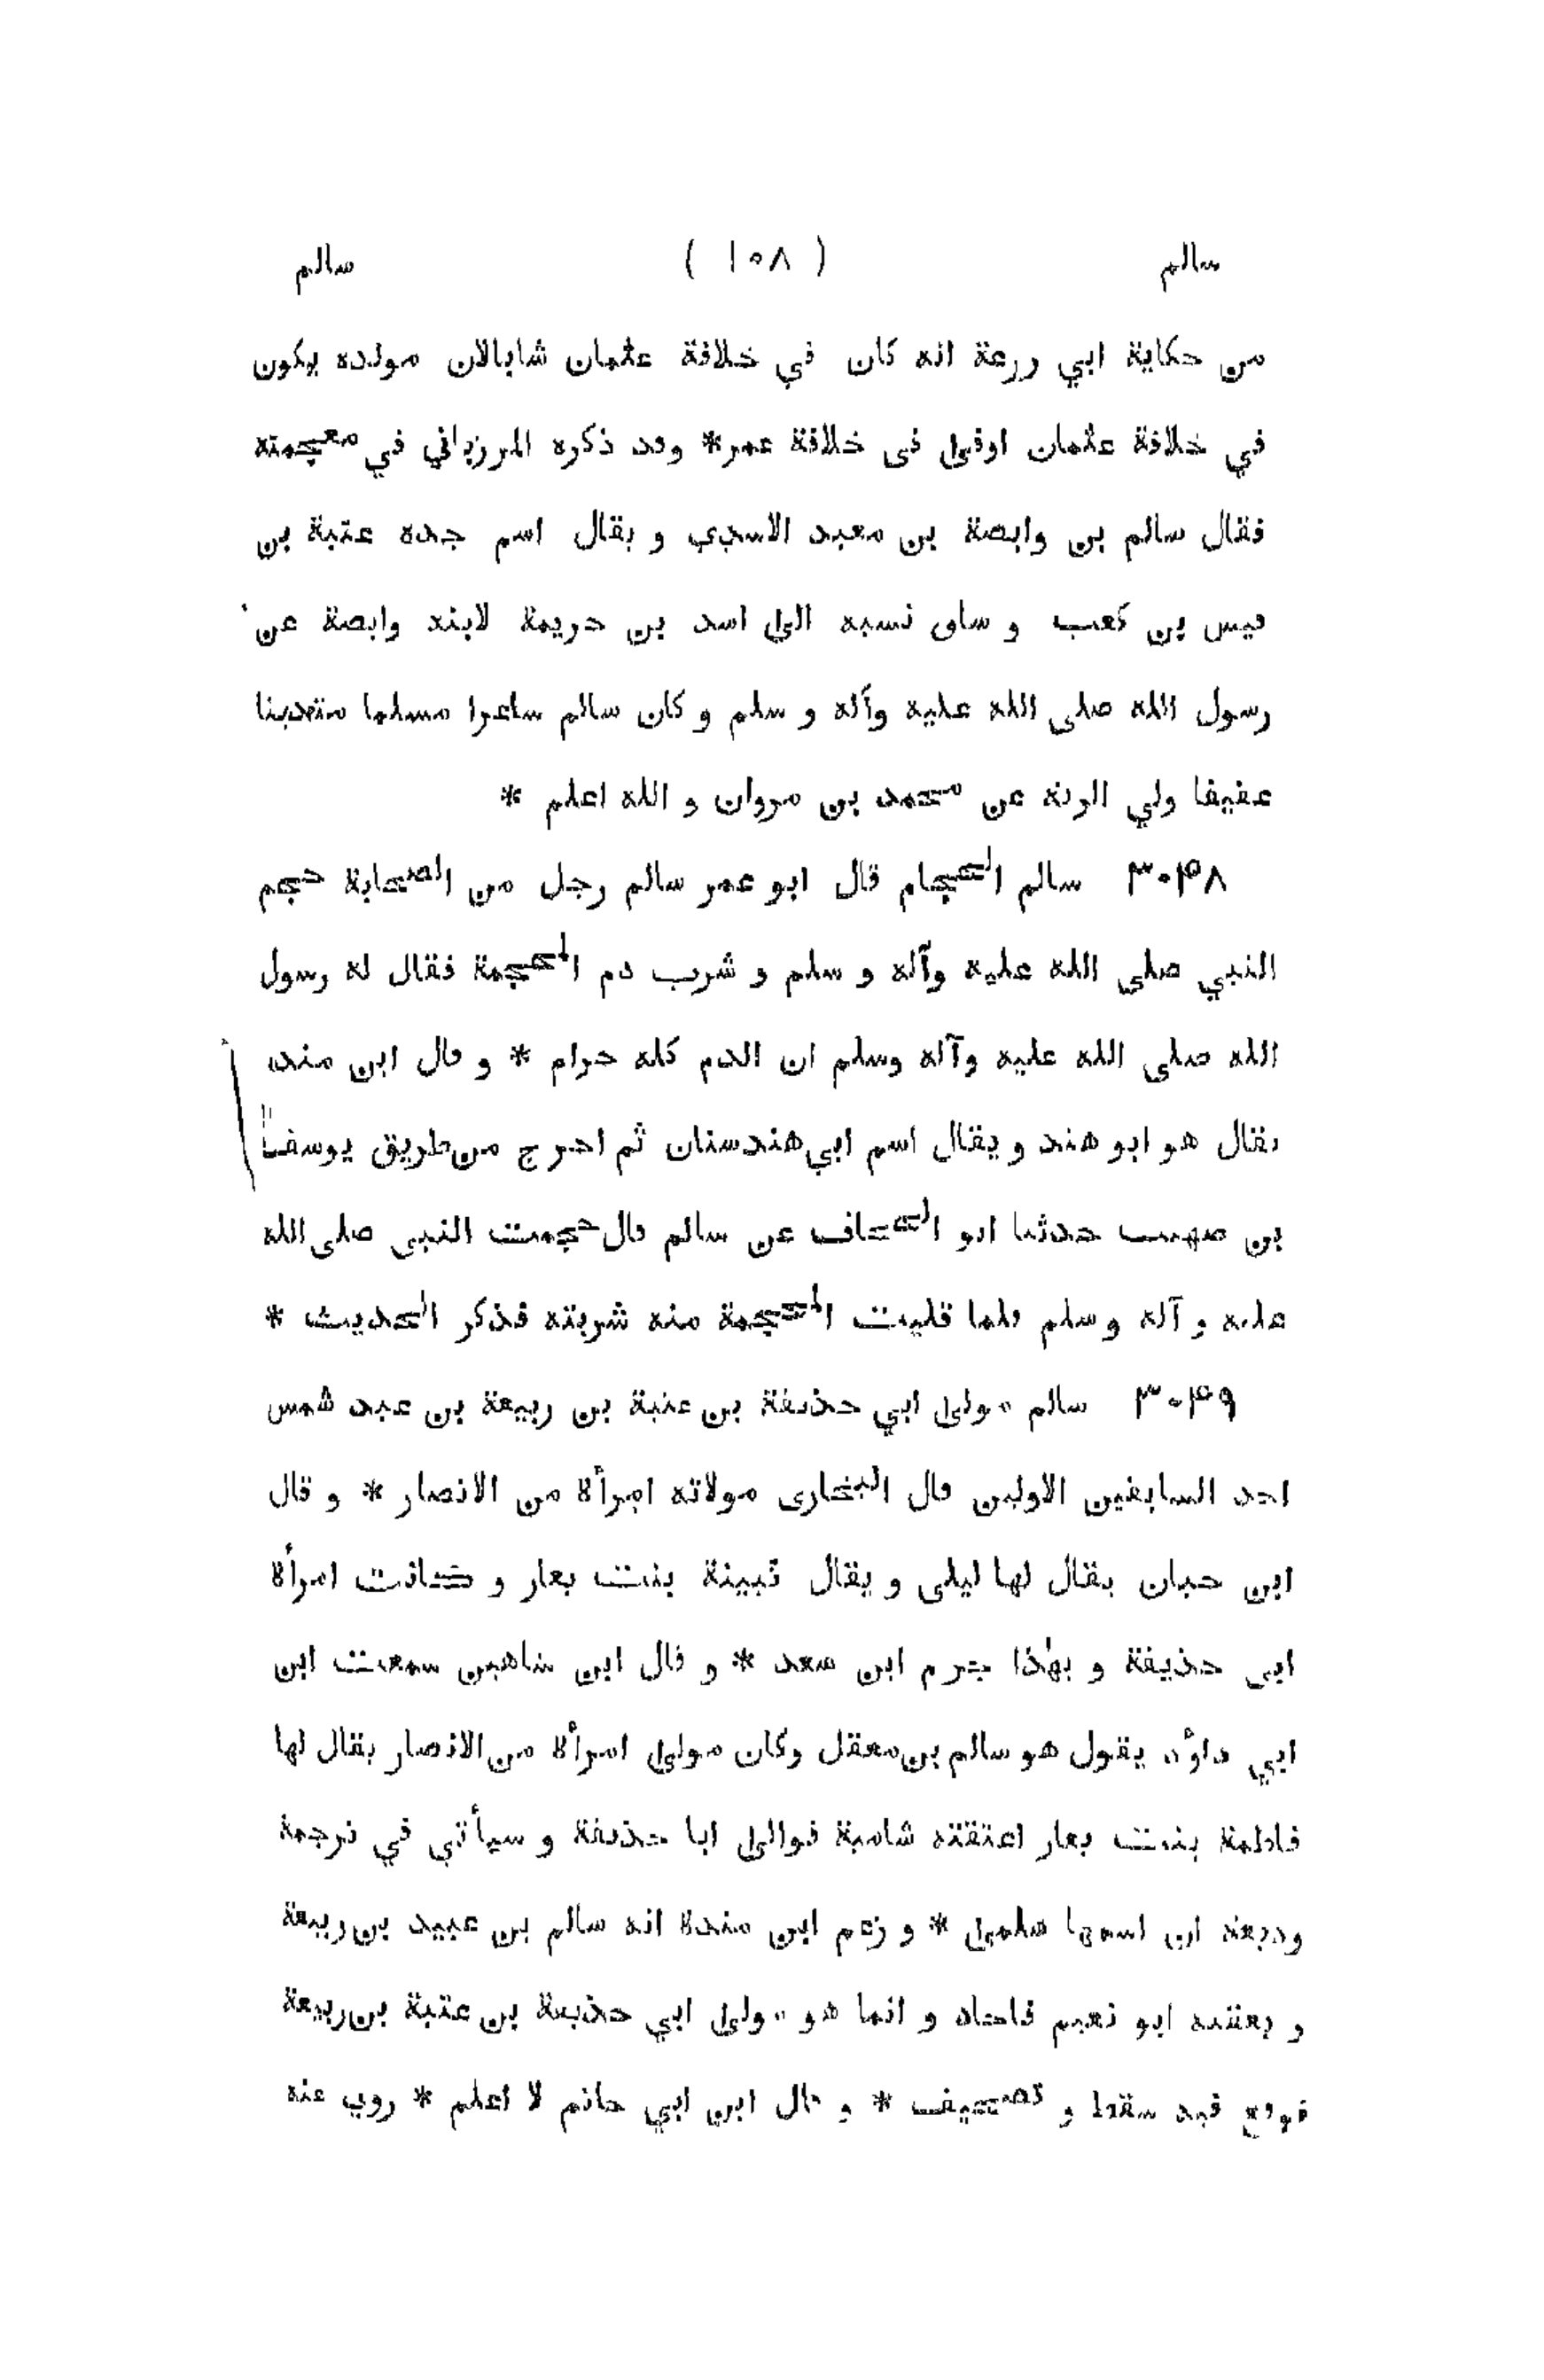 سالم ( ١٠٨ ) سالم
من حكاية ابي زرعة انه كان في خلافة عثمان شابالان مولده يكون
في خلافة عثمان اوفى فى خلافة عمر* وقد ذكره المرزباني في معجمته
فقال سالم بن وابصة بن معبد الاسدي و يقال اسم جده عتبة بن
قيس بن كعب و ساق نسبه الى اسد بن خزيمة لابنه وابصة عن
رسول الله صلى الله عليه وآله و سلم و كان سالم شاعرا مسلما متدينا
عفيفا ولي الرقة عن محمد بن مروان و الله اعلم *
٣٠۴٨ سالم الحجام قال ابو عمر سالم رجل من الصحابة حجم
النبي صلى الله عليه وآله و سلم و شرب دم المحجمة فقال له رسول
الله صلى الله عليه وآله وسلم ان الدم كله حرام * و قال ابن منده
يقال هو ابو هند و يقال اسم ابي هند سنان ثم اخرج من طريق يوسف
بن صهيب حدثنا ابو الجحاف عن سالم قال حجمت النبي صلى الله
عليه و آله وسلم فلما قليت المحجمة منه شربته فذكر الحديث *
٣٠۴٩ سالم مولى ابي حذيفة بن عتبة بن ربيعة بن عبد شمس
احد السابقين الاولين قال البخارى مولاته امرأة من الانصار * و قال
ابن حبان يقال لها ليلى و يقال ثبيتة بنت يعار و كانت امرأة
ابي حذيفة و بهذا جزم ابن سعد * و قال ابن شاهين سمعت ابن
ابي داؤد يقول هو سالم بن معقل وكان مولى امرأة من الانصار يقال لها
فاطمة بنت يعار اعتقته سائبة فوالى ابا حذيفة و سيأتي في ترجمة
وديعة ان اسمها سلمى * و زعم ابن مندة انه سالم بن عبيد بن ربيعة
و تعقبه ابو نعيم فاجاد و انما هو مولى ابي حذيفة بن عتبة بن ربيعة
فوقع فيه سقط و تصحيف * و قال ابن ابي حاتم لا اعلم * روي عنه